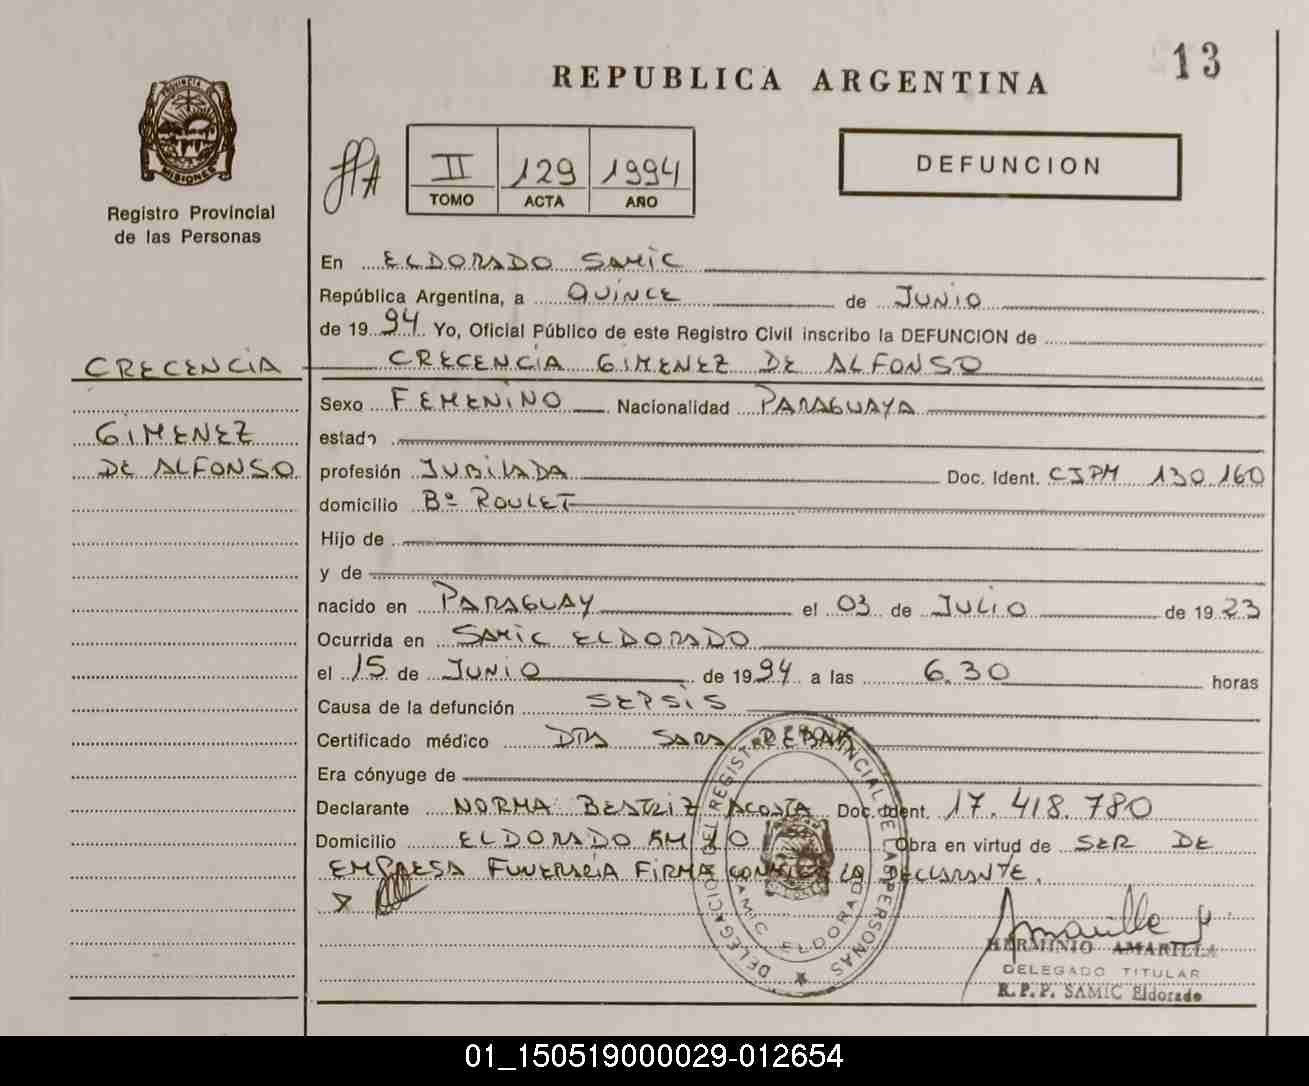 13
REPUBLICA ARGENTINA
PROVINCIA DE
MISIONES
Registro Provincial
de las Personas
II 129 1994
TOMO ACTA AÑO
DEFUNCION
En ELDORADO SAMIC
República Argentina, a QUINCE de JUNIO
de 1994 Yo, Oficial Público de este Registro Civil inscribo la DEFUNCION de
CRECENCIA GIMENEZ DE ALFONSO
CRECENCIA
GIMENEZ
DE ALFONSO
Sexo FEMENINO Nacionalidad PARAGUAYA
estado
profesión JUBILADA Doc. Ident. CIPM 130.160
domicilio Bº ROULET
Hijo de
y de
nacido en PARAGUAY el 03 de JULIO de 1923
Ocurrida en SAMIC ELDORADO
el 15 de JUNIO de 1994 a las 6.30 horas
Causa de la defunción SEPSIS
Certificado médico DRA SARA
Era cónyuge de
Declarante NORMA BEATRIZ ACOSTA Doc. Ident. 17.418.780
Domicilio ELDORADO KM 10 Obra en virtud de SER DE
EMPRESA FUNERARIA FIRMA CONMIGO LA DECLARANTE.
X
DELEGACIO DEL REGISTRO PROVINCIAL DE LAS PERSONAS
SAMIC ELDORADO
Amarilla
HERMINIO AMARILLA
DELEGADO TITULAR
R.P.P. SAMIC Eldorado
01_150519000029-012654